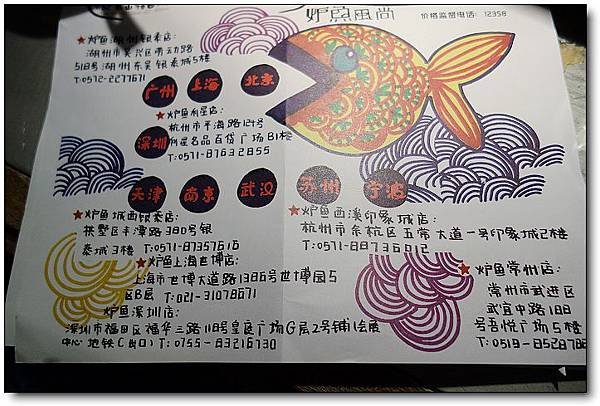 炉鱼风尚
价格监督电话: 12358
★炉鱼湖州银泰店:
湖州市吴兴区劳动路
518号湖州东吴银泰城5楼
T:0572-2277671
广州 上海 北京
★炉鱼利星店:
杭州市平海路124号
利星名品百货广场B1楼
T:0571-87632855
深圳
天津 南京 武汉 苏州 宁波
★炉鱼城西银泰店:
拱墅区丰潭路380号银
泰城3楼 T:0571-87357616
★炉鱼西溪印象城店:
杭州市余杭区五常大道一号印象城2楼
T:0571-88736012
★炉鱼上海世博店:
上海市世博大道路1386号世博园5
区B层 T:021-31078671
炉鱼深圳店:
深圳市福田区福华三路118号皇庭广场G层2号铺(会展
中心地铁C出口) T:0755-83216730
★炉鱼常州店:
常州市武进区
武宜中路188
号吾悦广场5楼
T:0519-8528788